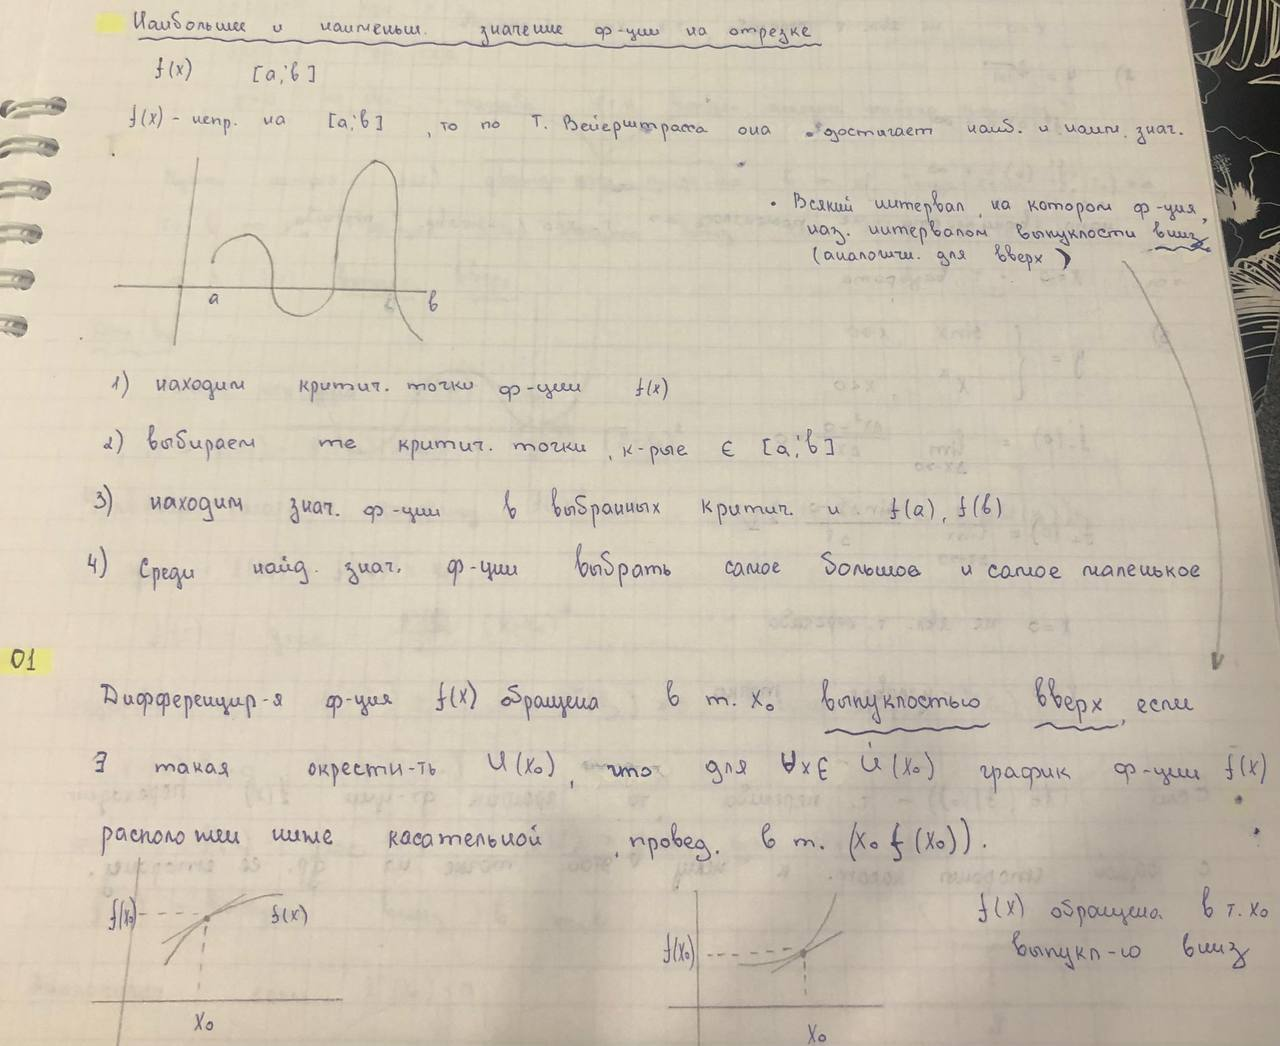 Наибольшее и наименьш. значение ф-ции на отрезке
f(x) [a;b]
f(x) - непр. на [a;b], то по Т. Вейерштрасса она достигает наиб. и наим. знач.
• Всякий интервал, на котором ф-ция,
наз. интервалом выпуклости вниз
(аналогичн. для вверх)
a b
1) находим критич. точки ф-ции f(x)
2) выбираем те критич. точки, к-рые ∈ [a;b]
3) находим знач. ф-ции в выбранных критич. и f(a), f(b)
4) Среди найд. знач. ф-ции выбрать самое большое и самое маленькое
01
Дифференцир-я ф-ция f(x) обращена в т. x₀ выпуклостью вверх, если
∃ такая окрестн-ть U(x₀), что для ∀x∈ U̇(x₀) график ф-ции f(x)
расположен ниже касательной, провед. в т. (x₀ f(x₀)).
f(x₀) f(x)
x₀
f(x₀)
x₀
f(x) обращена в т. x₀
выпукл-ю вниз